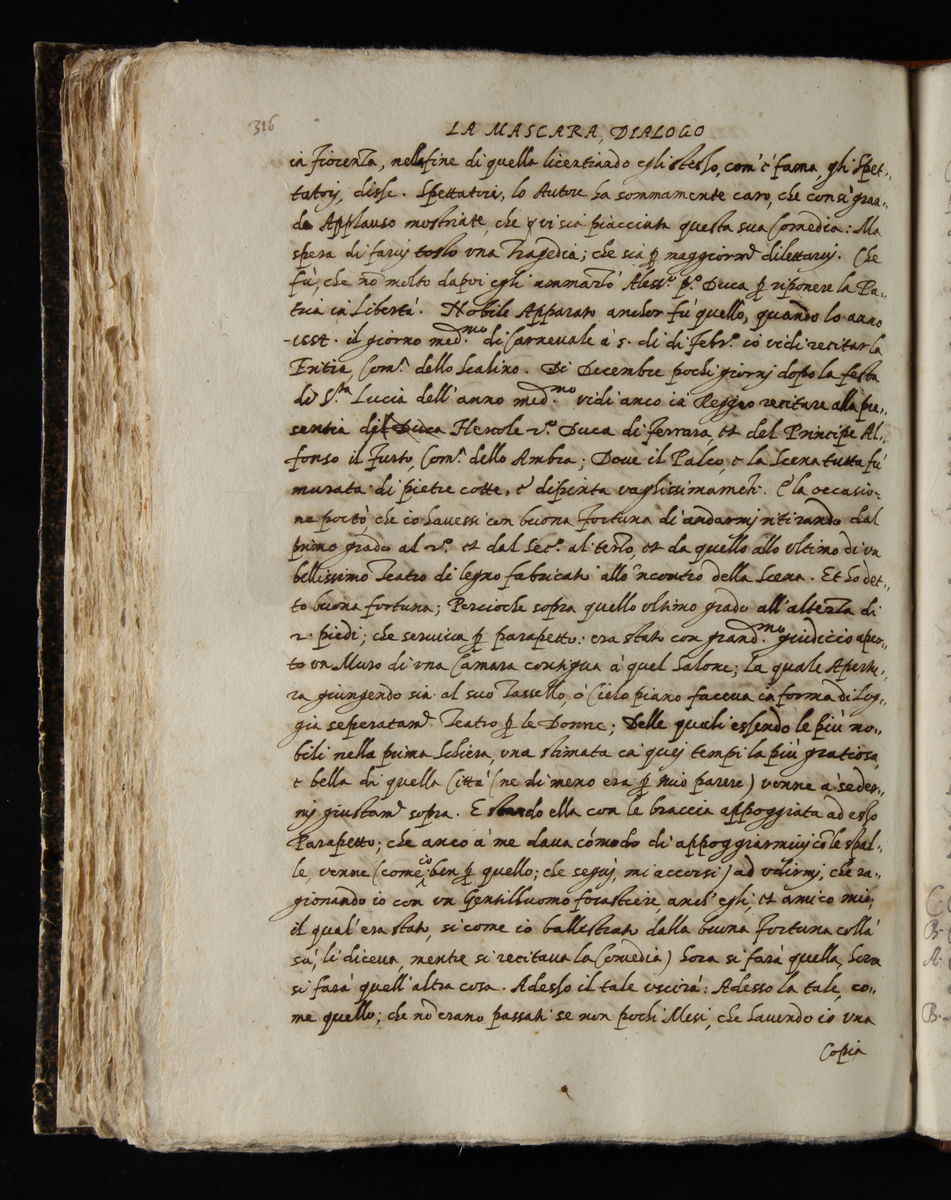 316
LA MASCARA, DIALOGO
in Fiorenza, nella fine di quella licentiando egli stesso, com'è fama, gli Spet-
tatorj, disse. Spettatori, lo Autore ha sommamente caro, che con sì gran-
de Applauso mostriate, che vi sia piacciuta questa sua Comedia: Ma
spera di farvj tosto una Tragedia; che sia p maggiormte dilettarvj. Che
fù, che nõ molto dapoi egli ammazzò Aless.º p.º Duca p riponere la Pa-
tria in Libertà. Nobile Apparato anchor fù quello, quando lo anno
-1554. il giorno med.mo di Carnevale à 5. di di Febr.º io vidi recitar la
Com.ª dello Scalino. Di Decembre pochi giornj dopo la festa
de S.ta Lucia dell'anno med.mo vidi anco in Reggio recitare alla pre-
sentia del Duca Hercole 2.º Duca di Ferrara, et del Principe Al-
fonso il Furto, Com.ª dello Ambra; Dove il Palco, e la Scena tutta fù
murata di pietre cotte, e dipinta vaghissimamẽte. E la occasio-
ne portò, che io havessi con buona fortuna di andarmj ritirando dal
primo grado al 2.º et dal Sec.º al terzo, et da quello allo ultimo di un
bellissimo Teatro di legno fabricato allo 'ncontro della Scena. Et ho det-
to buona fortuna; Percioche sopra quello ultimo grado all'altezza di
2. piedi; che serviva p parapetto: era stato con grand.mo giudicio aper-
to un Muro di una Camara contigua à quel Salone; la quale Apertu-
ra giungendo sia al suo Tassello, ò Cielo piano faceva in forma di Log-
gia seperatam.te Teatro p le Donne; Delle quali essendo le più no-
bili nella prima Schiera, una stimata ca quej tempi la più gratiosa,
e bella di quella Città (ne di meno era p mio parere) venne à seder-
mj giustam.te sopra. E stando ella con le braccia appoggiata ad esso
Parapetto; che anco à me dava cómodo di appoggiarmivj cõ le spal-
le, venne (come io ben p quello; che seguj, mi accorsi) ad udirmj, che ra-
gionando io con un Gentilluomo forastiere, anch'egli, et amico mio,
il qual'era stato, si come io ballestrato dalla buona Fortuna collà
sù, li diceva, mentre si recitava la Comedia) hora si farà quella, hora
si farà quell'altra cosa. Adesso il tale uscirà: Adesso la tale, co-
me quello; che nõ erano passati se non pochi Mesi, che havendo io una
Copia